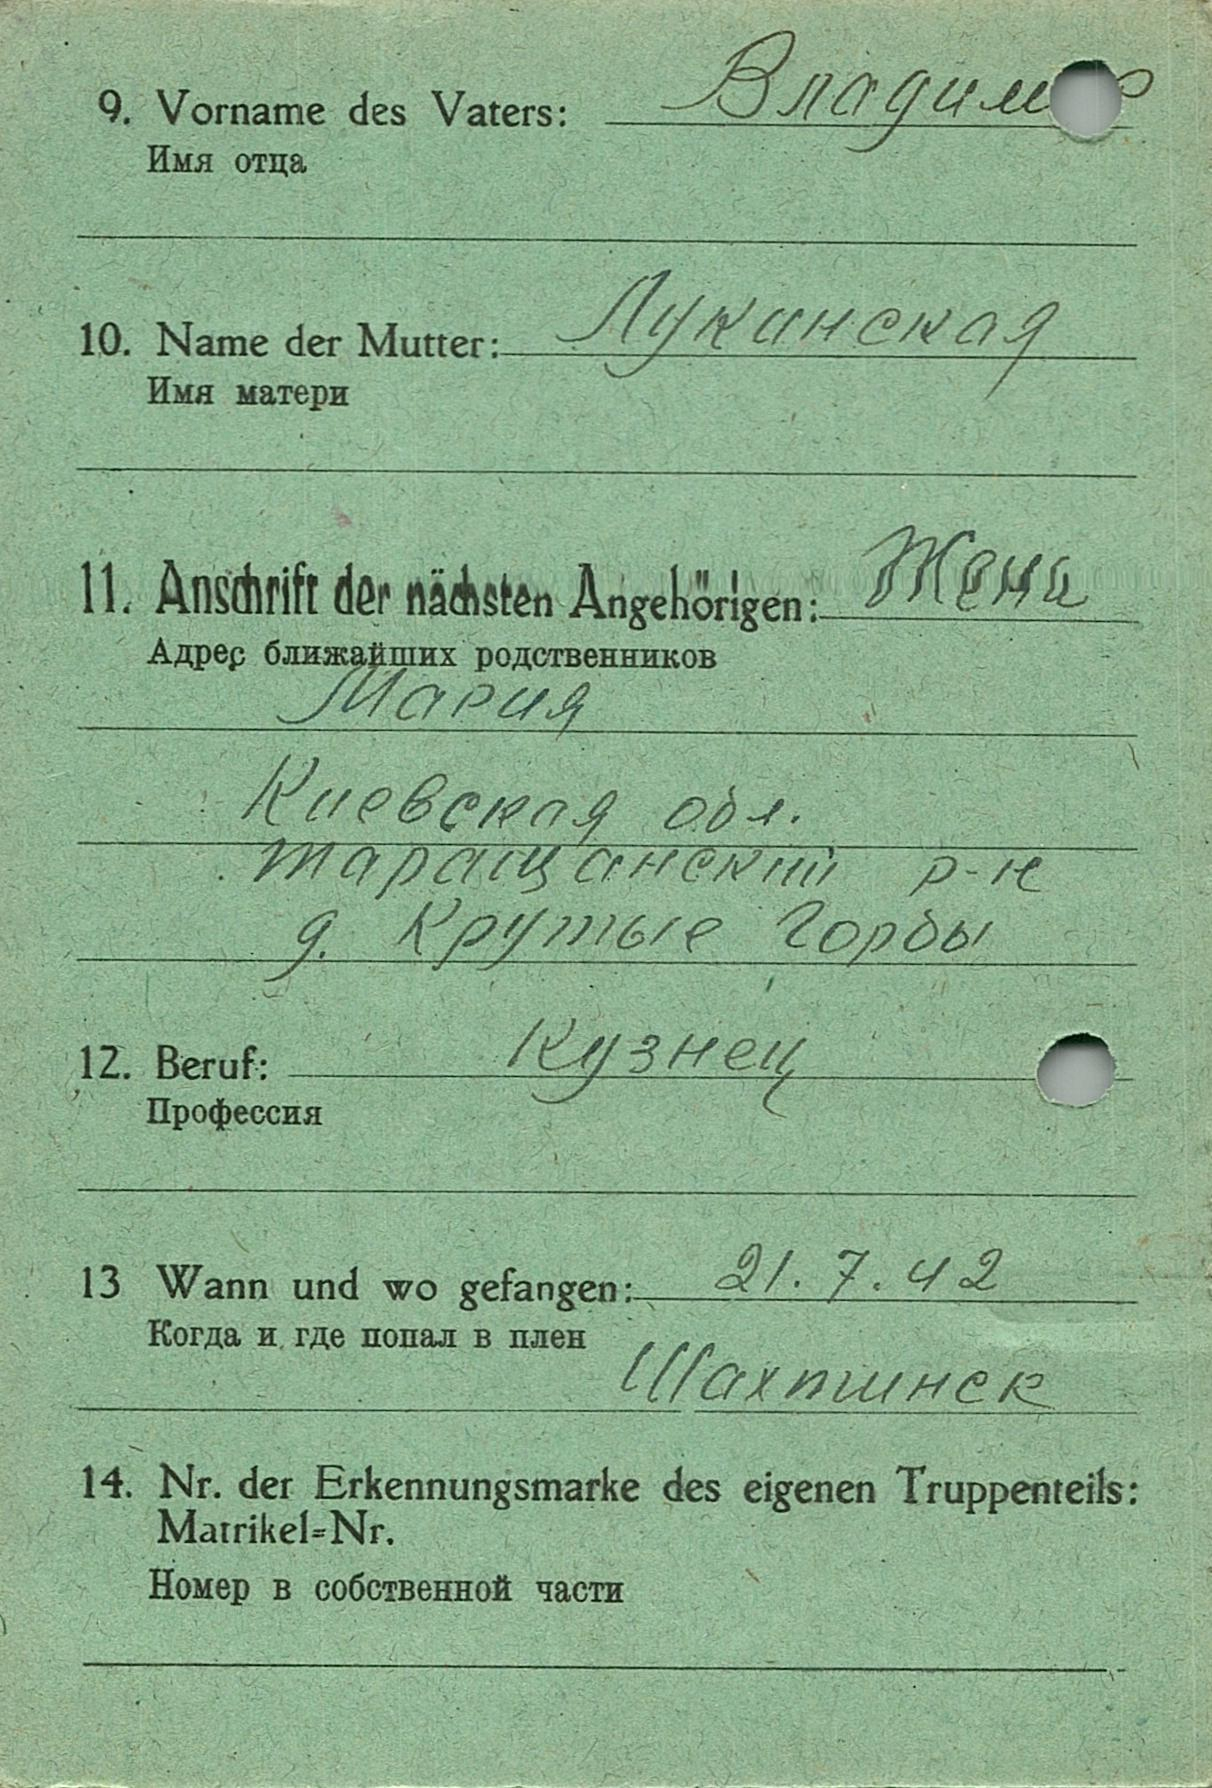 9. Vorname des Vaters: Владимир
Имя отца
10. Name der Mutter: Луканская
Имя матери
11. Anschrift der nächsten Angehörigen: Жена
Адрес ближайших родственников
Мария
Киевская обл.
таращанский р-н
д. Крутые Горбы
12. Beruf: Кузнец
Профессия
13 Wann und wo gefangen: 21.7.42
Когда и где попал в плен
Шахтинск
14. Nr. der Erkennungsmarke des eigenen Truppenteils:
Matrikel=Nr.
Номер в собственной части